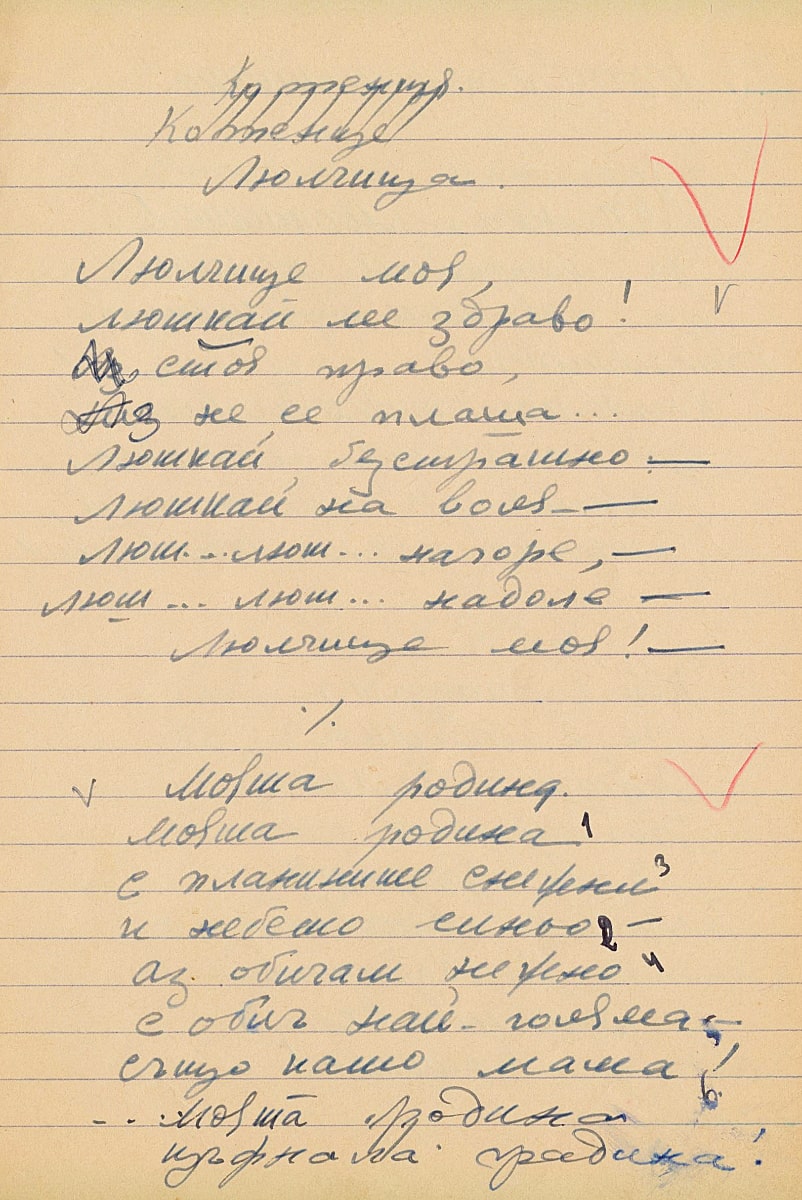 Котенце
Люлчица.
Люлчице моя,
люшкай ме здраво!
стоя право,
Аз не се плаша...
Люшкай безстрашно —
люшкай на воля —
люш... люш... нагоре, —
люш... люш... надоле —
Люлчице моя! —
·/.
V Моята родина.
Моята родина 1
с планините снежни 3
и небето синьо 2 —
аз обичам нежно 4
с обич най-голяма —
също като мама!
... Моята родина
цъфнала градина!